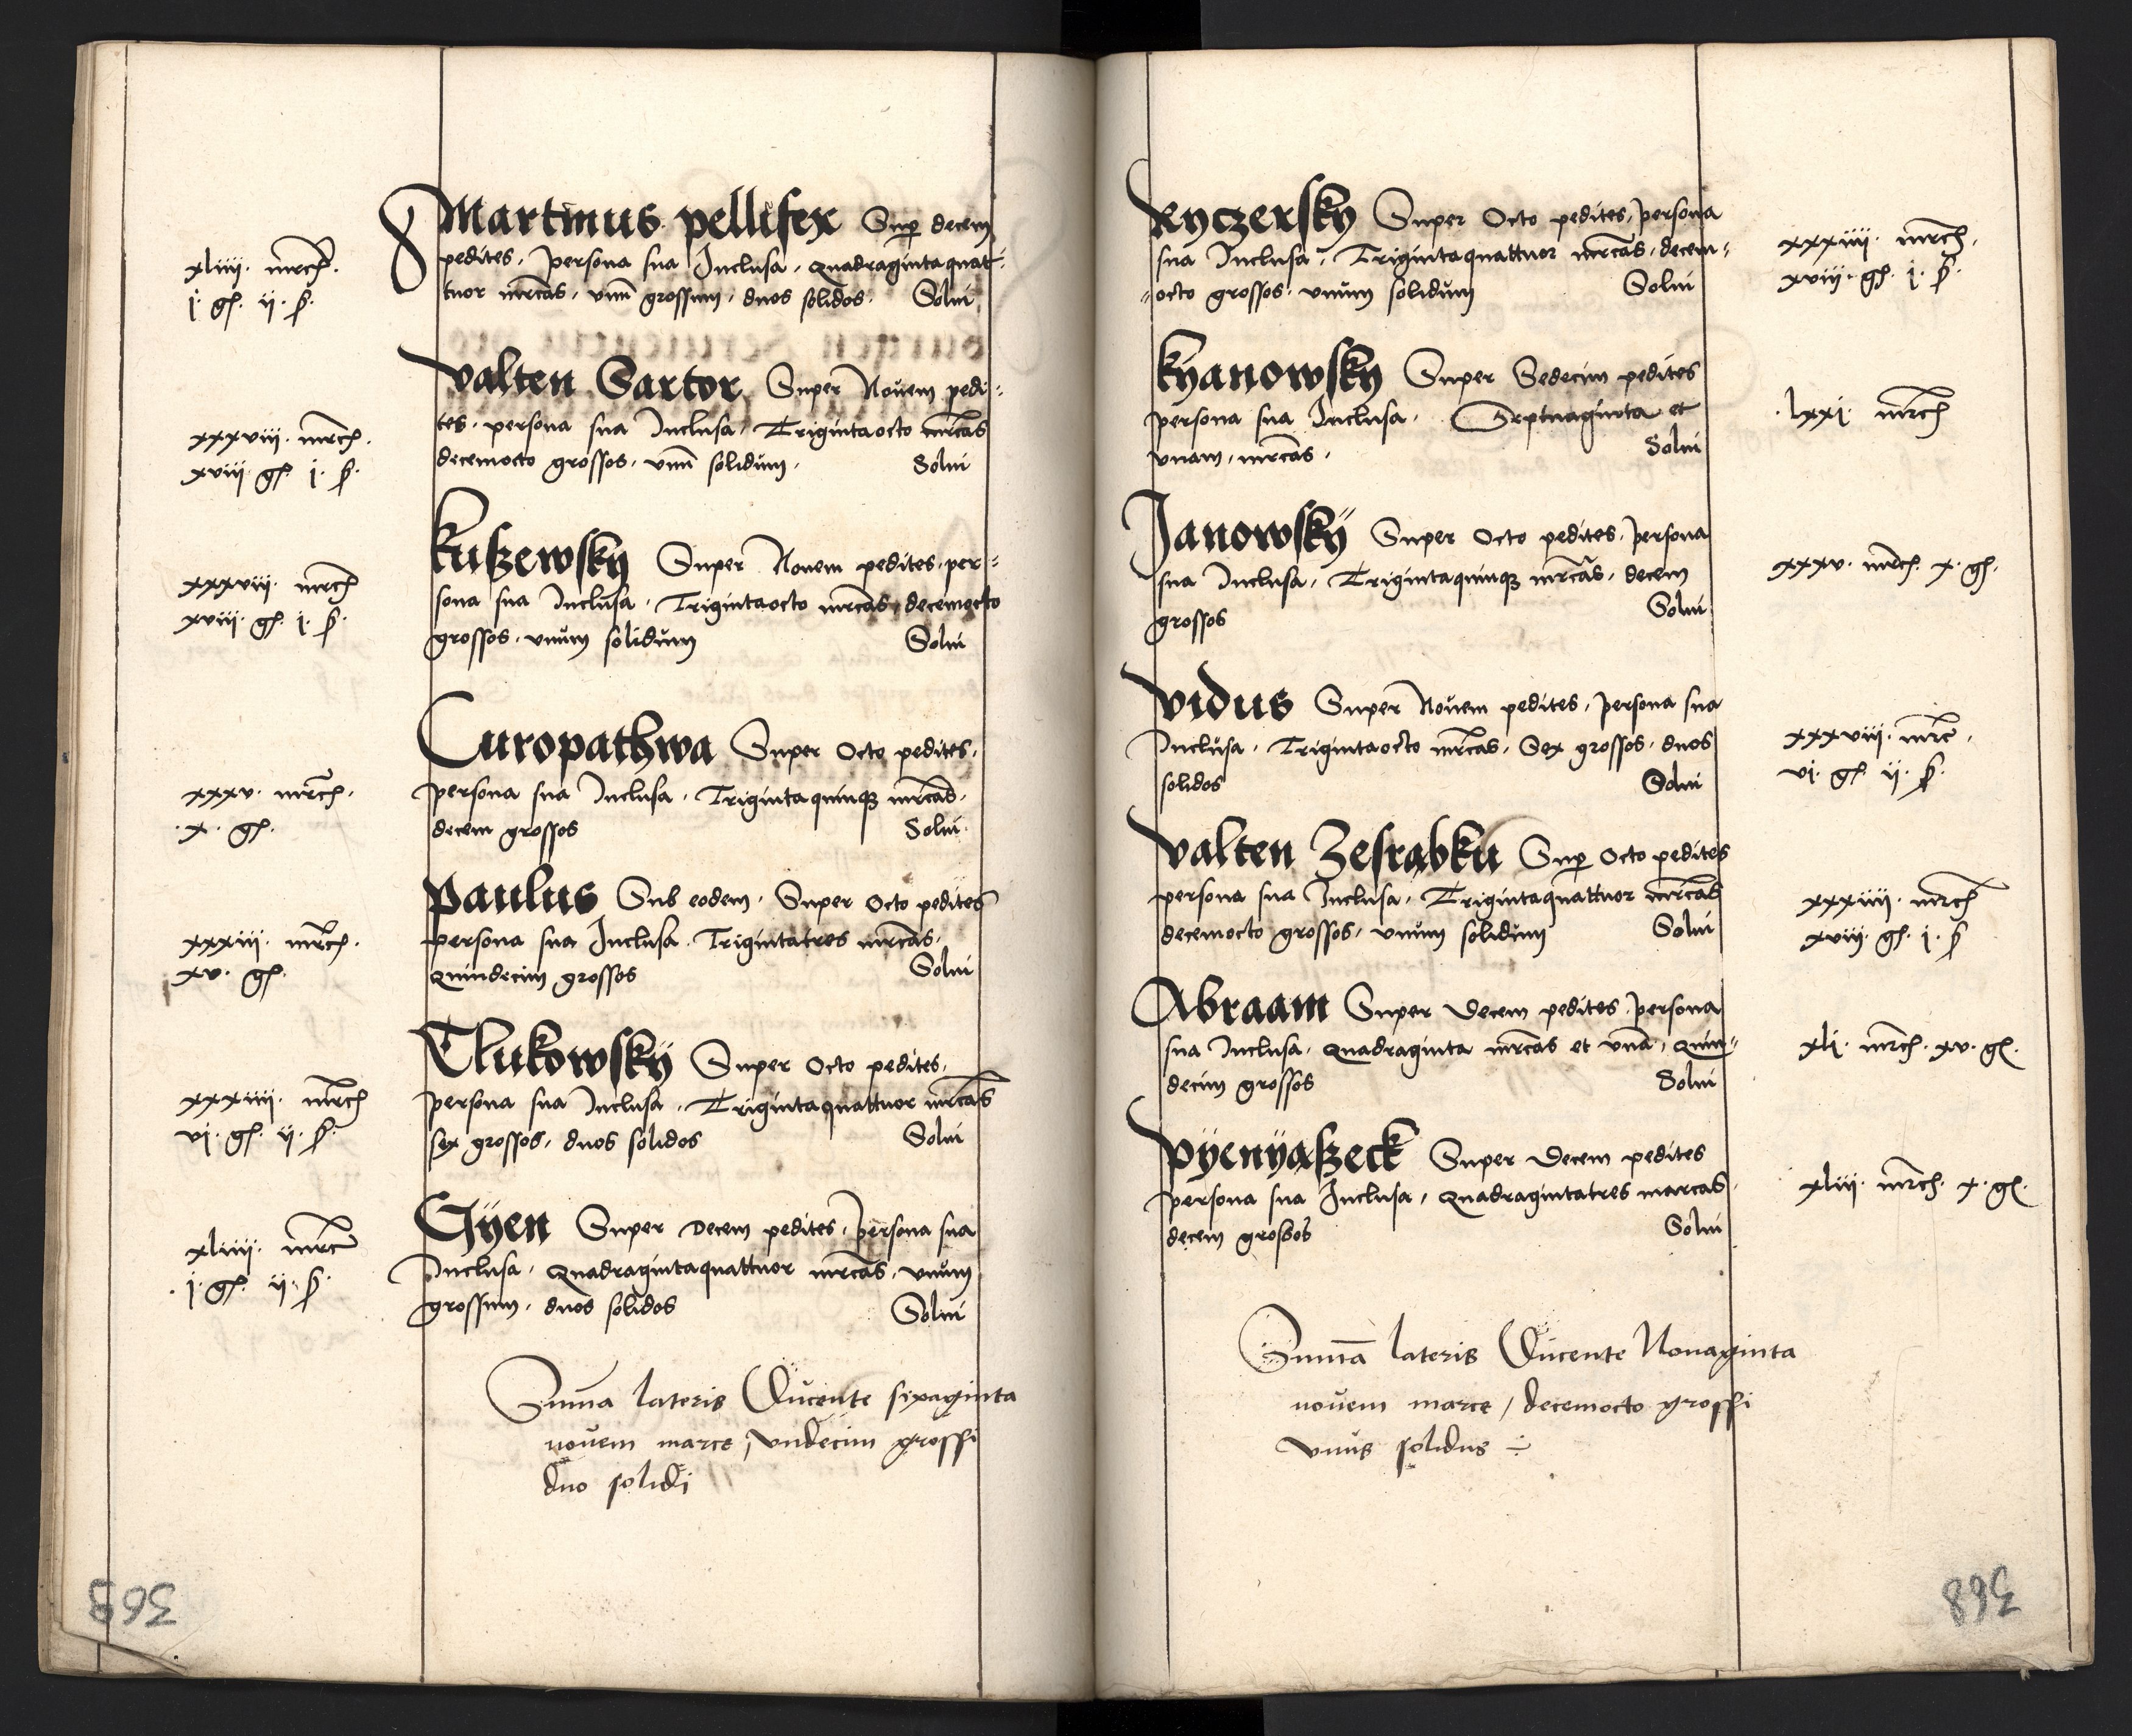 Martinus pellifex Sup decem
pedites, persona sua Inclusa, quadragintaquat-
tuor mrcas, vnu grossum, duos solidos. Solui
xliiii. mrch.
i. gs. ii. s.
valten Sartor Super Nouem pedi-
tes, persona sua Inclusa, Trigintaocto mrcas
decemocto grossos, vnu solidum. Solui
xxxviii. mrch.
xviii. gs. i. s.
kuszewsky Super Nouem pedites, per-
sona sua Inclusa, Trigintaocto mrcas, decemocto
grossos, vnum solidum Solui
xxxviii. mrch
xviii. gs. i. s.
Curopathwa Super Octo pedites,
persona sua Inclusa, Trigintaquinqz mrcas,
decem grossos Solui
xxxv. mrch.
.x. gs.
Paulus Sub eodem, Super Octo pedites
persona sua Inclusa. Trigintatres mrcas,
quindecim grossos Solui
xxxiii. mrch.
xv. gs.
Tlukowskÿ Super Octo pedites,
persona sua Inclusa, Trigintaquattuor mrcas
sex grossos, duos solidos Solui
xxxiiii. mrch
vi. gs. ii. s.
Gÿen Super Decem pedites, persona sua
Inclusa, quadragintaquattuor mrcas, vnum
grossum, duos solidos Solui
xliiii. mrc
.i. gs. ii. s.
Suma lateris Ducente sixaginta
nouem marce, vndecim grossi
duo solidi
369
Ryczersky Super Octo pedites, persona
sua Inclusa, Trigintaquattuor mrcas, decem-
-octo grossos, vnum solidum Solui
xxxiiii. mrch.
xviii. gs. i. s.
kÿanowsky Super Sedecim pedites
persona sua Inclusa, Septuaginta et
vnam, mrcas. Solui
.lxxi. mrch
Janowskÿ Super Octo pedites, persona
sua Inclusa, Trigintaquinqz mrcas, decem
grossos Solui
xxxv. mrch. x. gs.
vidus Super Nouem pedites, persona sua
Inclusa, Trigintaocto mrcas, Sex grossos, duos
solidos Solui
xxxviii. mrc.
vi. gs. ii. s.
valten Zesrabku Sup Octo pedites
persona sua Inclusa, Trigintaquattuor mrcas
decemocto grossos, vnum solidum Solui
xxxiiii. mrch
xviii. gs. i. s
Abraam Super Decem pedites, persona
sua Inclusa, quadraginta mrcas et vna, quin-
decim grossos Solui
xli. mrch. xv. gs.
pÿenÿaszeck Super Decem pedites
persona sua Inclusa, quadragintatres marcas.
decem grossos Solui
xliii. mrch. x. gs.
Suma lateris Ducente Nonaginta
nouem marce, decemocto grossi
vnus solidus
368